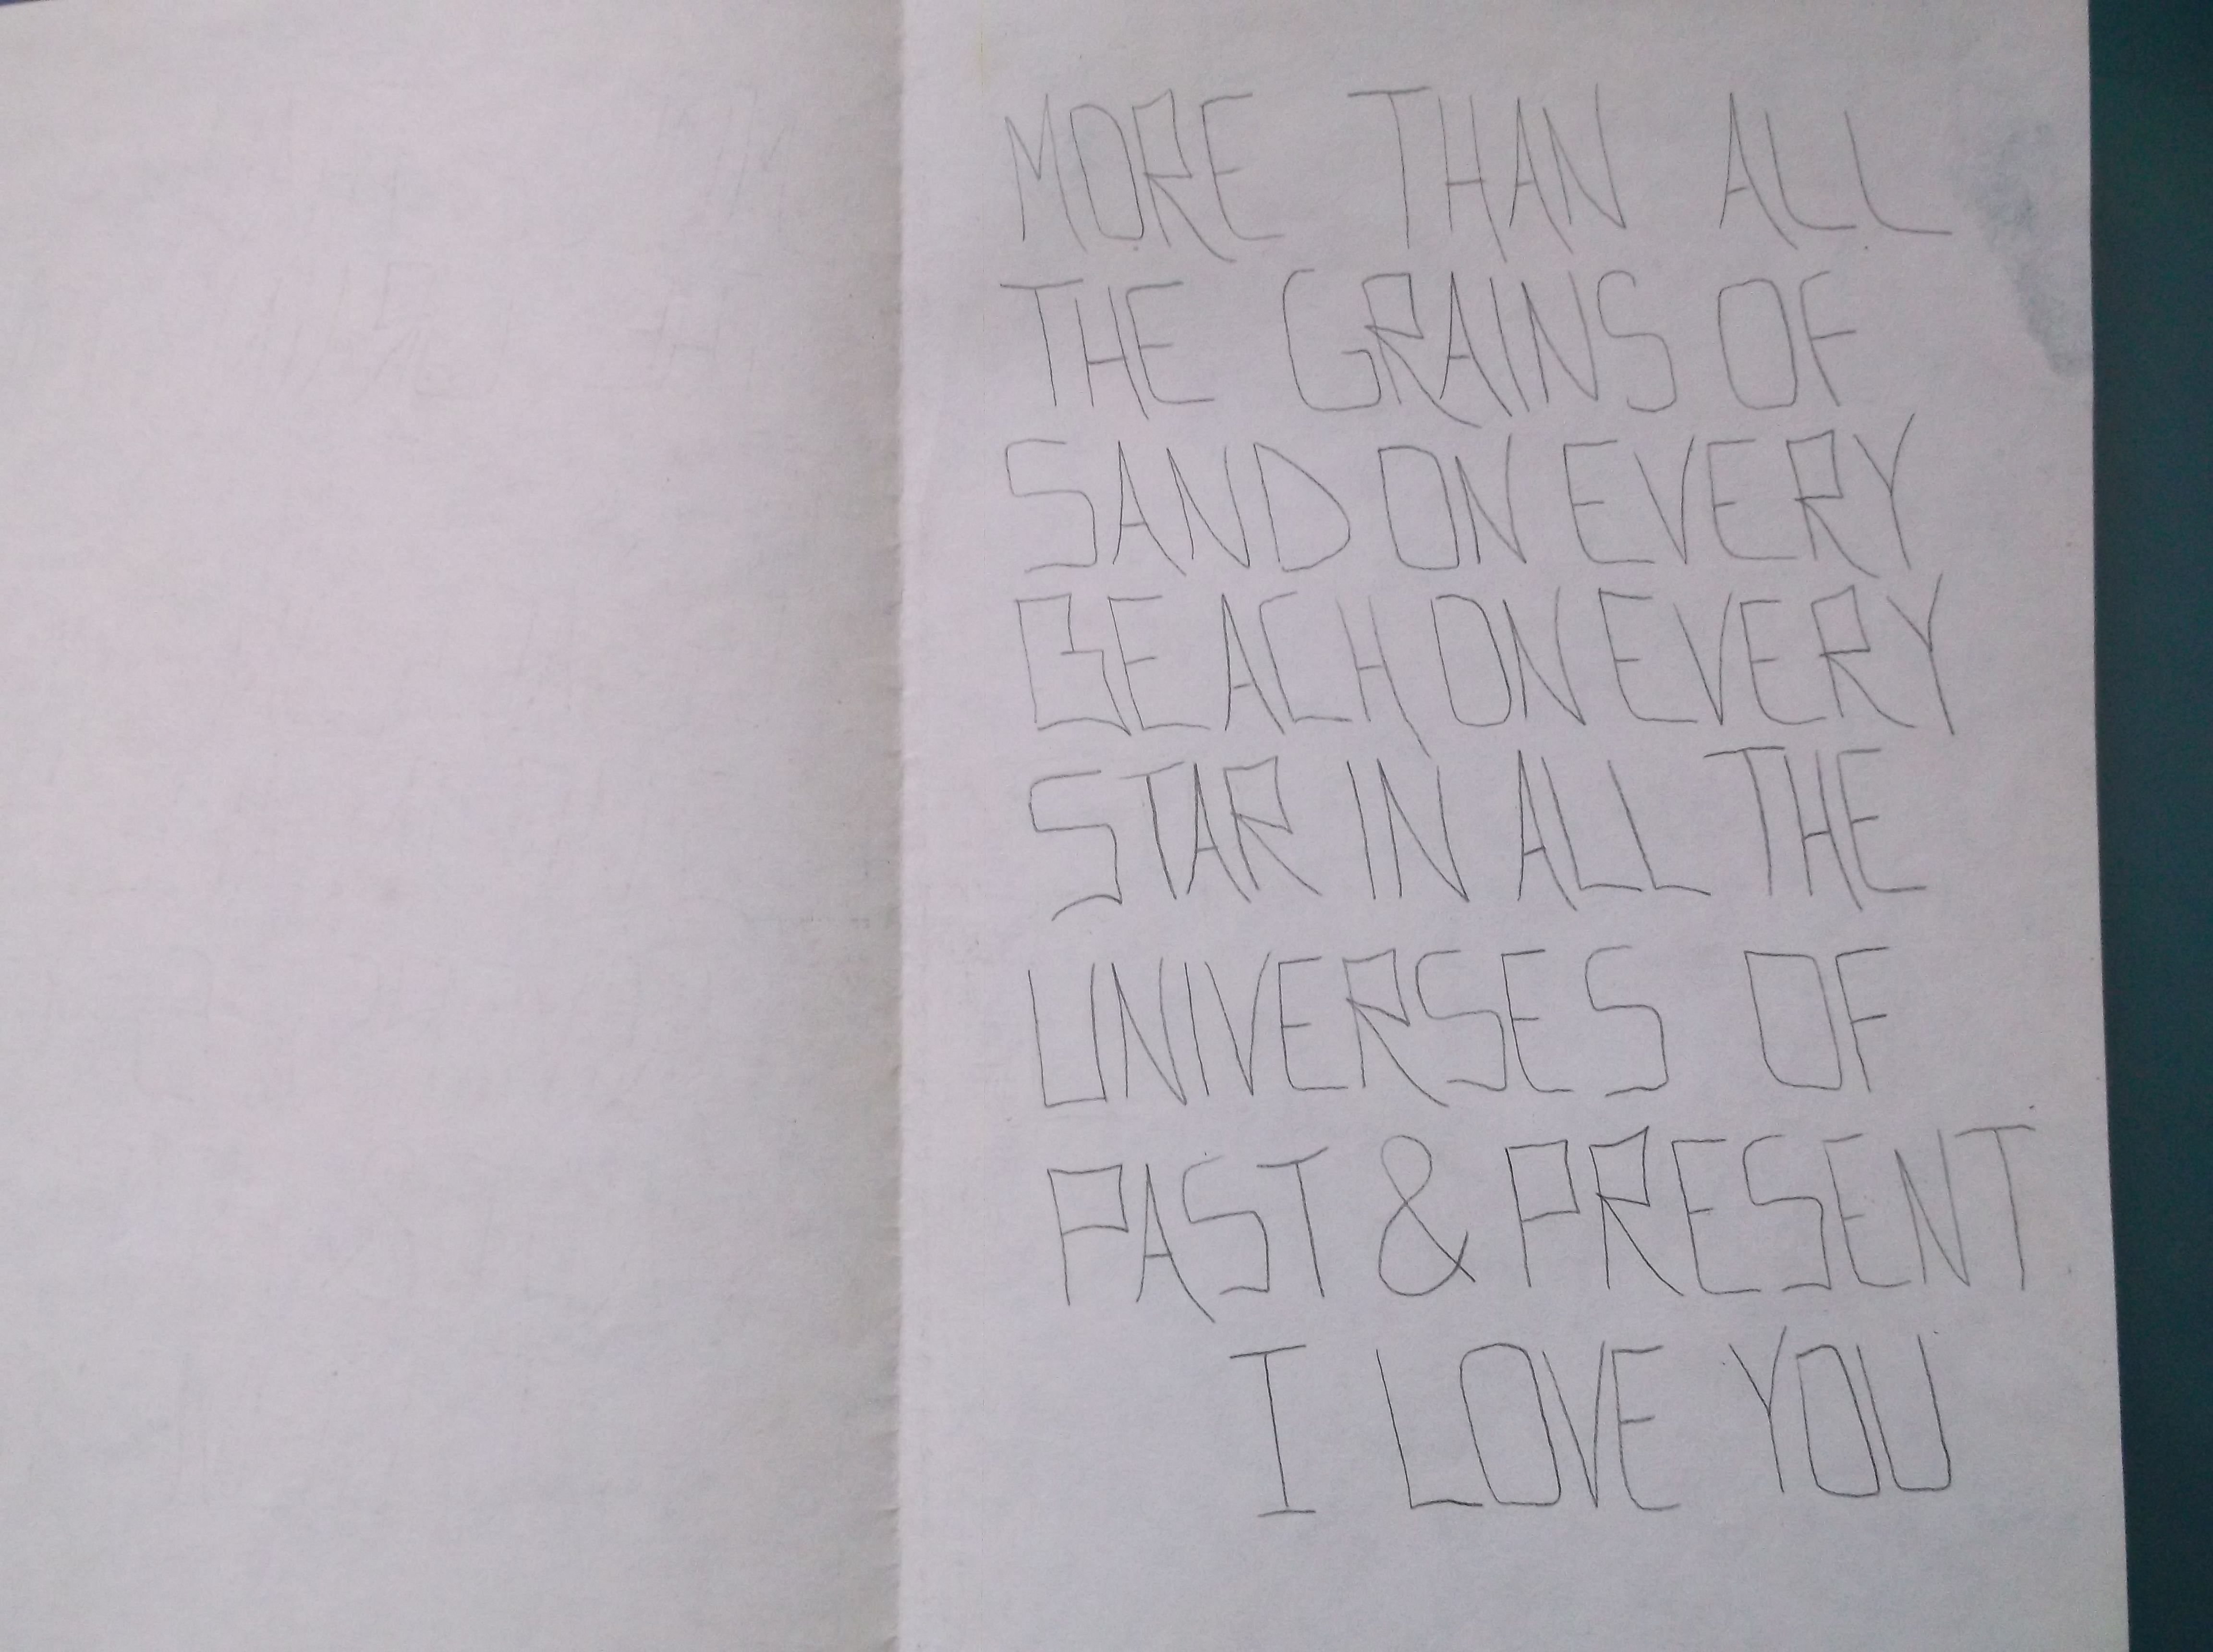 MORE THAN ALL
THE GRAINS OF
SAND ON EVERY
BEACH ON EVERY
STAR IN ALL THE
UNIVERSES OF
PAST & PRESENT
I LOVE YOU